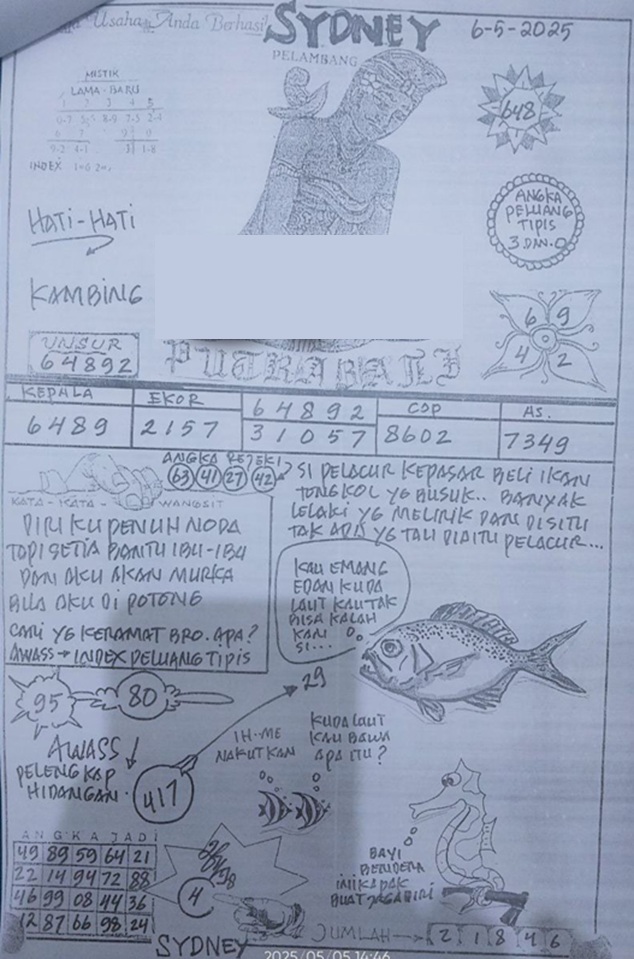 Usaha Anda Berhasil
SYDNEY
6-5-2025
PELAMBANG
MISTIK
LAMA-BARU
1 2 3 4 5
INDEX
648
HATI-HATI
ANGKA
PELUANG
TIPIS
3 DAN 0
KAMBING
6 9
4 2
UNSUR
64892
PUTRA BALI
KEPALA
EKOR
64892
COP
AS.
6489
2157
31057
8602
7349
ANGKA REJEKI
63 41 27 42
KATA-KATA-WANGSIT
DIRI KU PENUH NODA
TAPI SETIA BANTU IBU-IBU
DAN AKU AKAN MURKA
BILA AKU DI POTONG
CARI YG KERAMAT BRO. APA?
AWASS → INDEX PELUANG TIPIS
SI PELACUR KEPASAR BELI IKAN
TONGKOL YG BUSUK.. BANYAK
LELAKI YG MELIRIK DAN DISITU
TAK ADA YG TAU DIAITU PELACUR...
KAU EMANG
EDAN KUDA
LAUT KAU TAK
BISA KALAH
KAN
SI...
95
80
29
AWASS ↓
PELENGKAP
HIDANGAN
417
IH-ME
NAKUTKAN
KUDA LAUT
KAU BAWA
APA ITU?
ANGKA JADI
49 89 59 64 21
22 14 94 72 88
46 99 08 44 36
12 87 66 98 24
4
BAYI
BENDERA
INI KAPAK
BUAT JAGA DIRI
JUMLAH → 2 1 8 4 6
SYDNEY
2025/05/05 14:46